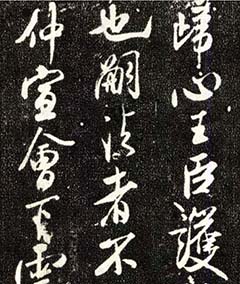 歸心王臣護
也嗣法者不
仲宣會下雲